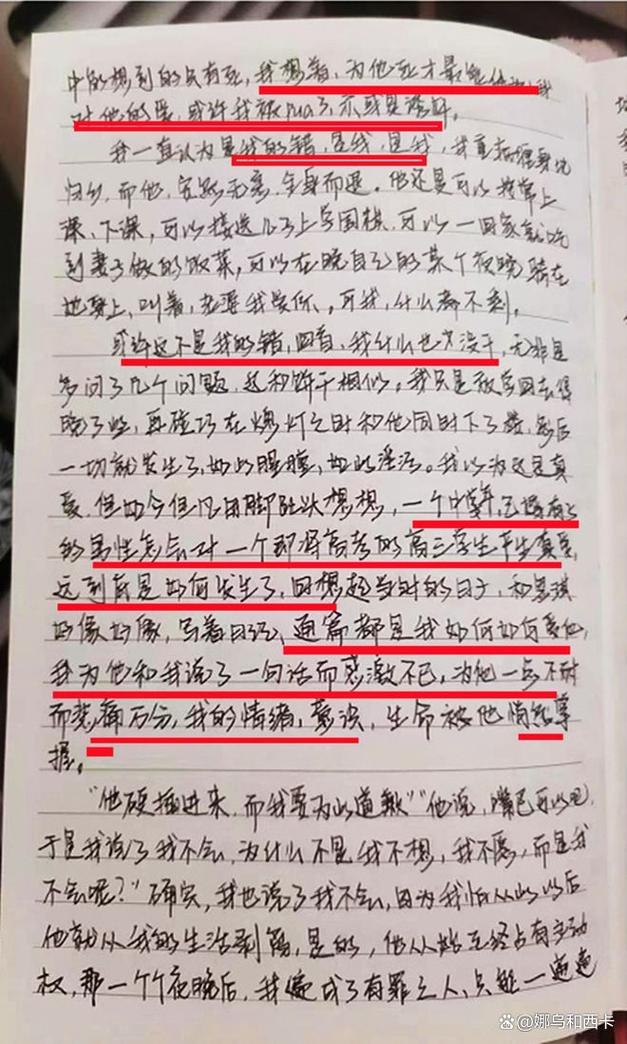 中的想到的只有死，我想着，为他死才最能体现我
对他的爱，或许我被pua了，亦或是活该。
我一直认为是我的错，是我，是我，我重
归乡，而他，安然无恙，全身而退。他还是可以正常上
课、下课，可以接送儿子上学围棋，可以一回家就吃
到妻子做的饭菜，可以在晚自己的某个夜晚骑在
她身上，叫着，老婆我爱你，可我，什么都不剩。
或许这不是我的错，四首，我什么也没干，无非是
多问了几个问题，这和饼干相似。我只是放学回去得
晚了些，再碰巧在熄灯之时和他同时下了楼，然后
一切就发生了，如此腥膻，如此淫污。我以为这是真
爱，但如今但凡用脚趾头想想，一个中年，已婚有子
的男性怎么对一个即将高考的高三学生产生真爱，
这到底是如何发生了，回想起当时的日子，和思琪
好像好像，写着日记，通篇都是我如何如何爱他，
我为他和我说了一句话而感激不已，为他一点不耐
而悲痛万分，我的情绪，意识，生命被他悄然掌
握。
“他硬插进来，而我要为此道歉”“他说，嘴巴可以吧，
于是我说了我不会，为什么不是我不想，我不愿，而是我
不会呢？”确实，我也说了我不会，因为我怕从此以后
他就从我的生活剥离，是的，他从始至终占有主动
权，那一个个夜晚后，我便成了有罪之人，只能一遍遍
@娜乌和西卡